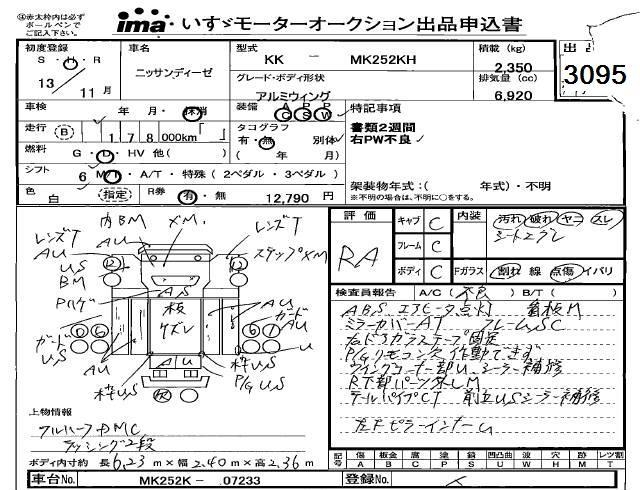 ④赤太枠内は必ずボールペンでご記入下さい。
ima いすゞモーターオークション出品申込書
初度登録 S・H・R 13 11月
車名 ニッサンディーゼ
型式 KK － MK252KH
積載 (kg) 2,350
グレード・ボディ形状 アルミウィング
排気量 (cc) 6,920
出 3095
車検 年 月・抹消
装備 A P P C S W
特記事項
書類2週間
右PW不良
走行 (B) 1 7 8 000km「 」
タコグラフ 有・無 別体 ( 年 月)
燃料 G・D・HV 他( )
シフト 6 M/T・A/T・特殊 (2ペダル・3ペダル)
架装物年式：( 年式)・不明
※不明の場合は、不明に○をする。
色 白 (指定) R券 有・無 12,790 円
評価 RA
キャブ C
フレーム C
ボディ C
内装 汚れ 破れ ヤニ スレ
シートエグレ
Fガラス 割れ 線 点傷 イバリ
内BM メM レンズT
レンズT AU ステップメM
AU US BM
Pハゲ AS AU
板 ケズレ ガード AU
ガード US AU U
P/G US
検査員報告 A/C (不良) B/T ( )
ABS エアヒータ点灯 看板M
ミラーカバーAT フレームSC
左ドアガラステープ固定
P/Gリモコン欠 作動できず
ウィングコーナー却U シーラー補修
RT却パーツ外しM
テールパイプCT 前立USシーラー補修
左Fピラーインナー U
上物情報
ラッシング2段
ボディ内寸約 長 6.23 m×幅 2.40 m×高 2.36 m
記号 傷 A 板金 B 腐 C 塗 P 錆 S 凹凸曲 U 波 W 穴 H 跡 M レツ割 T
車台No. MK252K－ 07233
登録No.